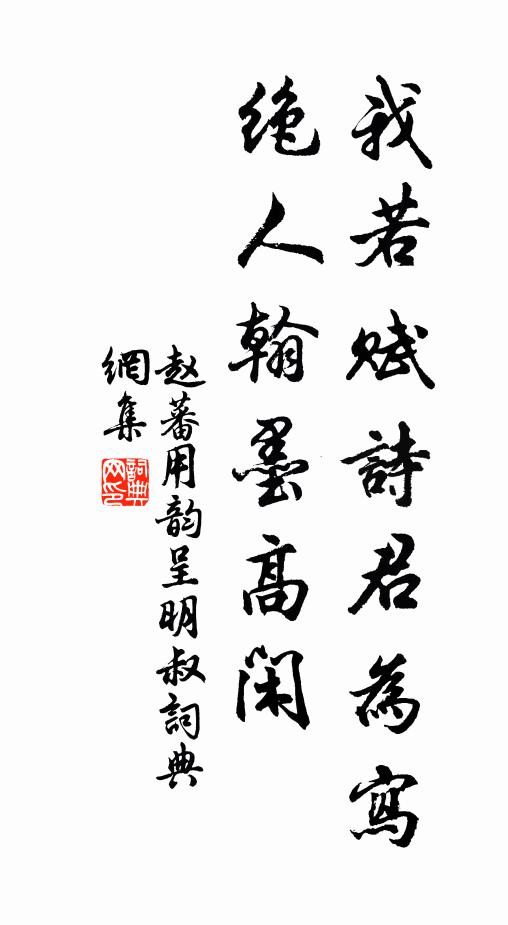 我若赋詩君為寫
绝人翰墨高闲
赵蕃用韵呈明叔詞典
網集
詞典
网印